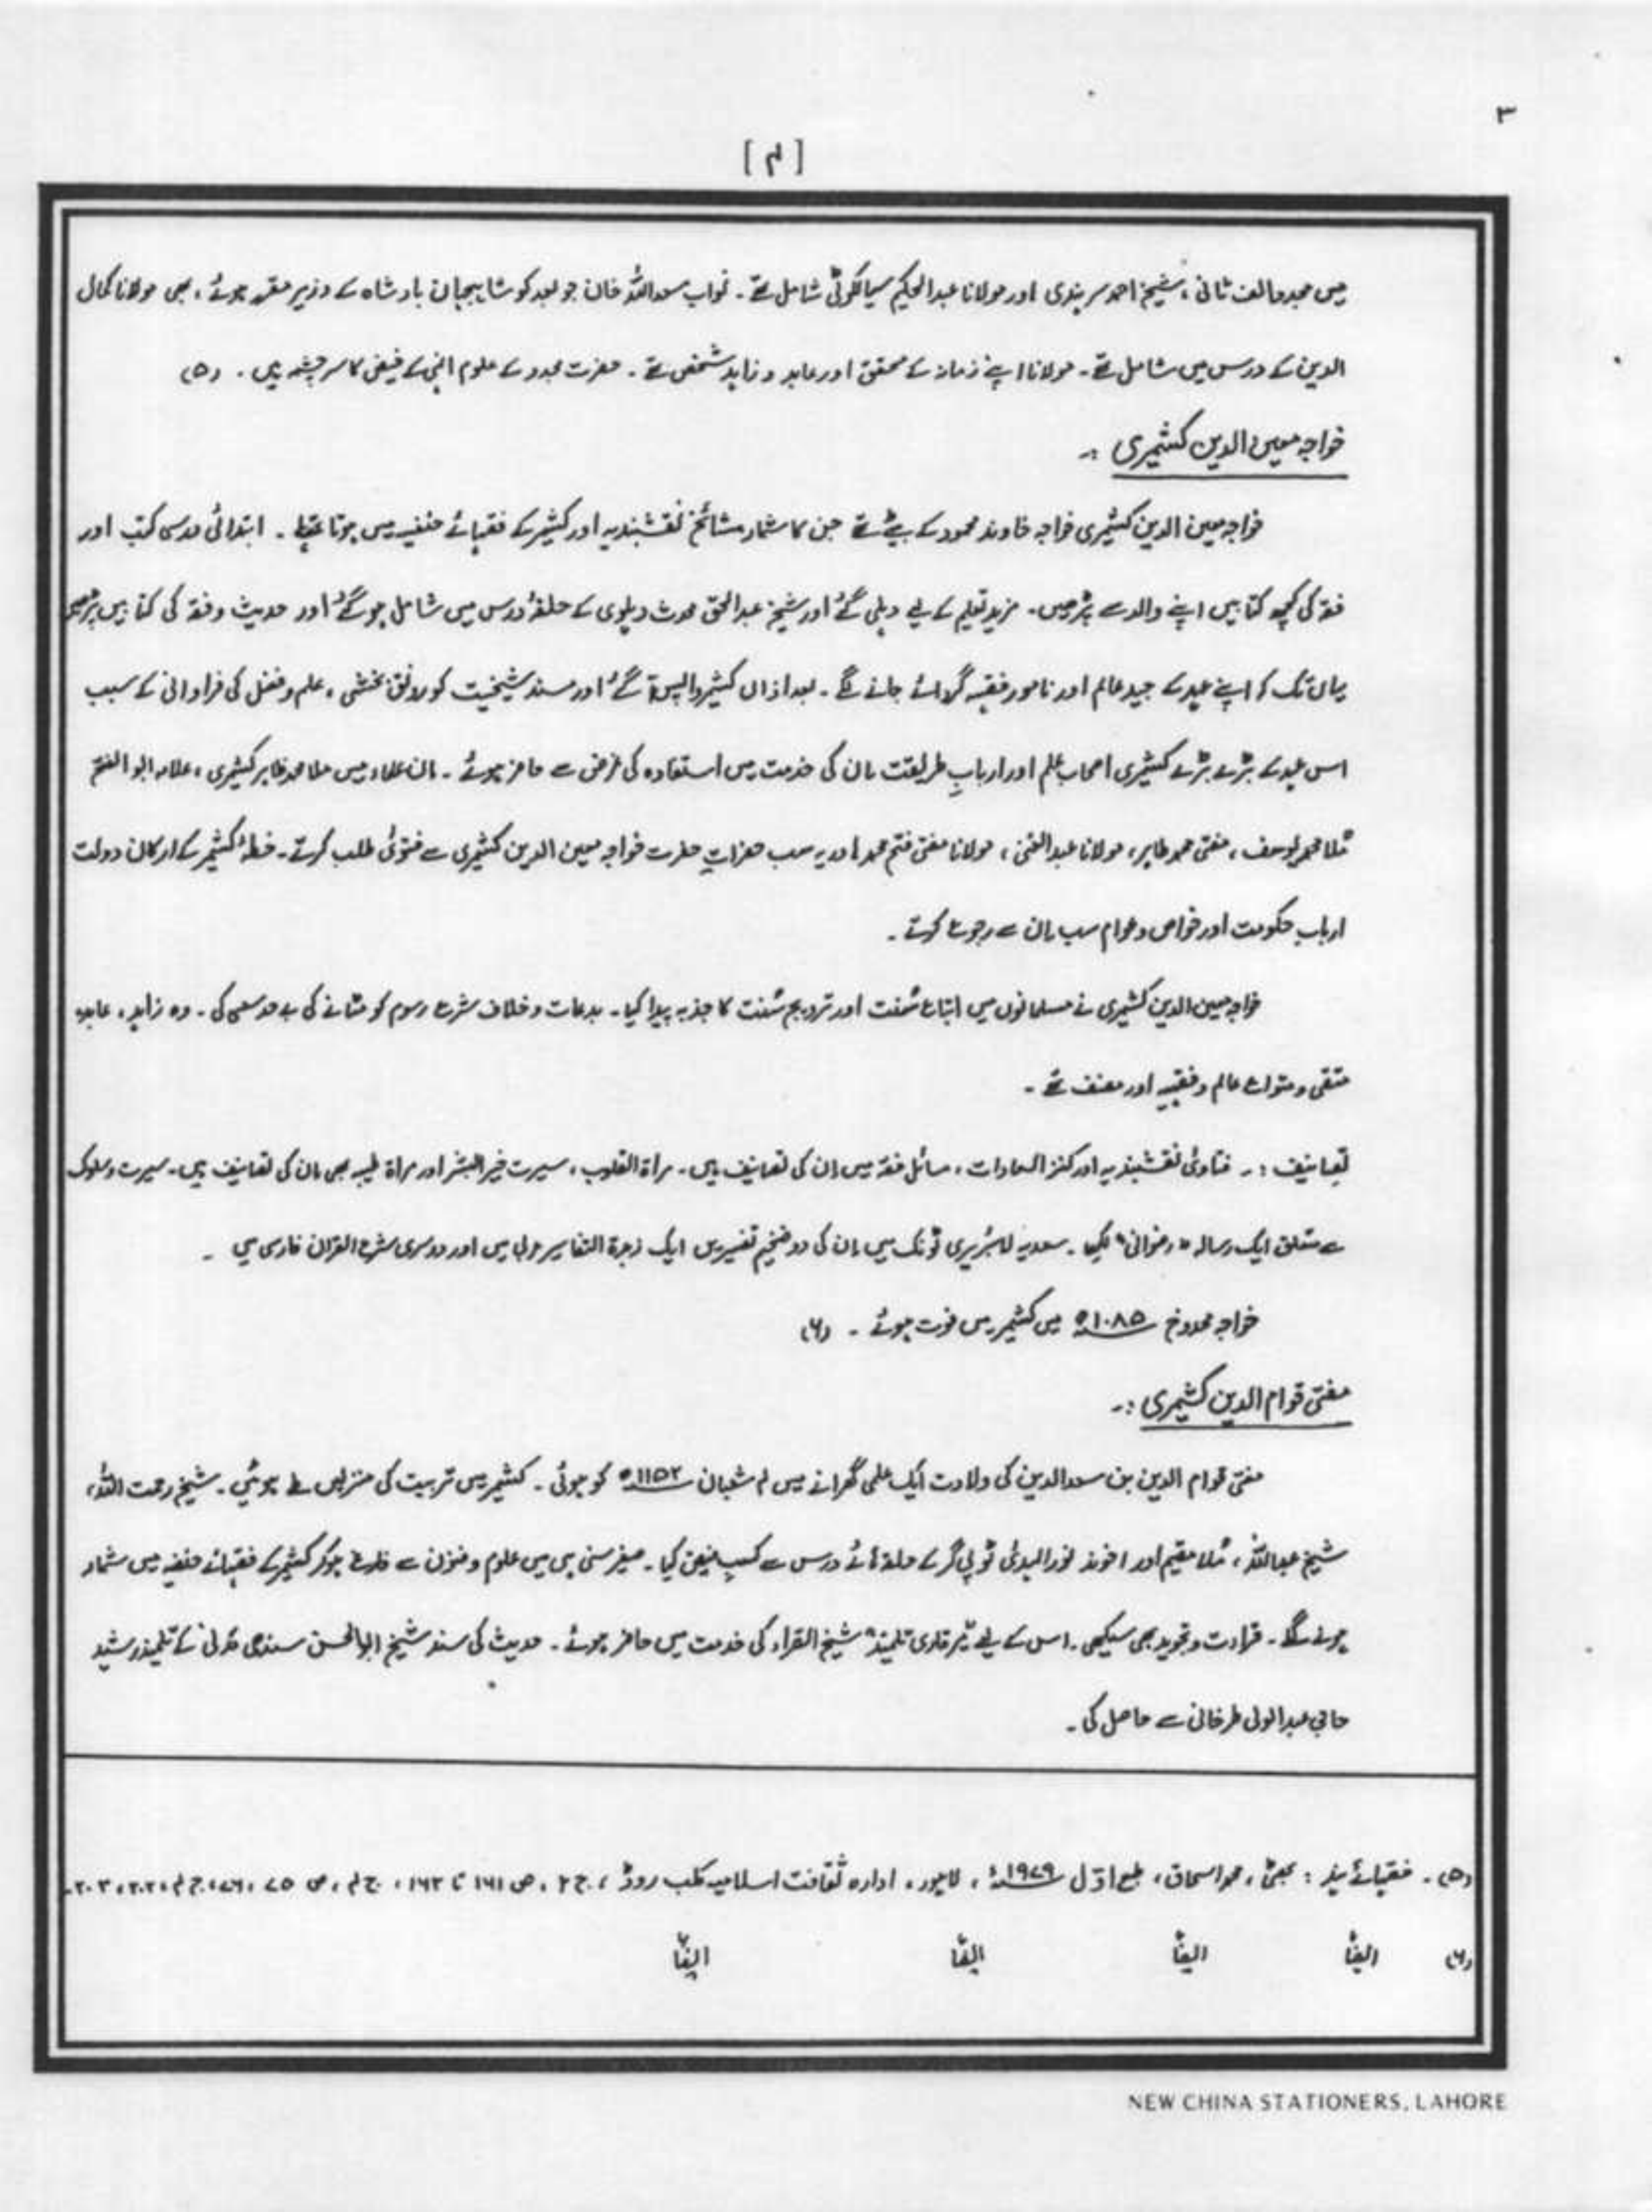 ۳
[۴]
میں مجدد الف ثانی، شیخ احمد سرہندی اور مولانا عبدالحکیم سیالکوٹی شامل تھے۔ نواب سعد اللہ خان جو بعد کو شاہجہان بادشاہ کے وزیر مقرر ہوئے، بھی مولانا کمال
الدین کے درس میں شامل تھے۔ مولانا اپنے زمانہ کے محقق اور عابد و زاہد شخص تھے۔ حضرت مجدد کے علوم انہی کے فیض کا سرچشمہ ہیں۔ (۵)
خواجہ معین الدین کشمیری :۔
خواجہ معین الدین کشمیری خواجہ خاوند محمود کے بیٹے تھے جن کا شمار مشائخ نقشبندیہ اور کشمیر کے فقہائے حنفیہ میں ہوتا تھا۔ ابتدائی درسی کتب اور
فقہ کی کچھ کتابیں اپنے والد سے پڑھیں۔ مزید تعلیم کے لیے دہلی گئے اور شیخ عبدالحق محدث دہلوی کے حلقۂ درس میں شامل ہو گئے اور حدیث و فقہ کی کتابیں پڑھیں
یہاں تک کہ اپنے عہد کے جید عالم اور نامور فقیہہ گردانے جانے لگے۔ بعد ازاں کشمیر واپس آ گئے اور مسند شیخیت کو رونق بخشی، علم و فضل کی فراوانی کے سبب
اس عہد کے بڑے بڑے کشمیری اصحاب علم اور اربابِ طریقت ان کی خدمت میں استفادہ کی غرض سے حاضر ہوئے۔ ان علماء میں ملا محمد طاہر کشمیری، علامہ ابو الفتح
مُلا محمد یوسف، مفتی محمد طاہر، مولانا عبدالغنی، مولانا مفتی فتح محمد اور یہ سب حضرات حضرت خواجہ معین الدین کشمیری سے فتویٰ طلب کرتے۔ خطۂ کشمیر کے ارکان دولت
ارباب حکومت اور خواص و عوام سب ان سے رجوع کرتے۔
خواجہ معین الدین کشمیری نے مسلمانوں میں اتباع سُنت اور ترویج سُنت کا جذبہ پیدا کیا۔ بدعات و خلاف شرع رسوم کو مٹانے کی بے حد سعی کی۔ وہ زاہد، عابد،
متقی و متواضع عالم و فقیہہ اور مصنف تھے۔
تصانیف :۔ فتاویٰ نقشبندیہ اور کنز السعادات، مسائل فقہ میں ان کی تصانیف ہیں۔ مراۃ القلوب، سیرت خیر البشر اور مراۃ طیبہ بھی ان کی تصانیف ہیں۔ سیرت و سلوک
سے متعلق ایک رسالہ "رضوانی" لکھا۔ سعدیہ لائبریری ٹونک میں ان کی دو ضخیم تفسیریں ایک زبدۃ التفاسیر عربی میں اور دوسری شرح القران فارسی میں۔
خواجہ ممدوح ۱۰۸۵ھ میں کشمیر میں فوت ہوئے۔ (۶)
مفتی قوام الدین کشمیری :۔
مفتی قوام الدین بن سعد الدین کی ولادت ایک علمی گھرانے میں ۴ شعبان ۱۱۵۲ھ کو ہوئی۔ کشمیر میں تربیت کی منزلیں طے ہوئیں۔ شیخ رحمت اللہ،
شیخ عبداللہ، مُلا مقیم اور اخوند نور الہدیٰ ٹوپی گر کے حلقہ ہائے درس سے کسبِ فیض کیا۔ صغیر سنی ہی میں علوم و فنون سے فارغ ہو کر کشمیر کے فقہائے حنفیہ میں شمار
ہونے لگے۔ قراءت و تجوید بھی سیکھی۔ اس کے لیے "میر قاری تلمیذ" شیخ القراء کی خدمت میں حاضر ہوئے۔ حدیث کی سند شیخ ابوالحسن سندھی مدنی کے تلمیذ رشید
حاجی عبدالولی طرخانی سے حاصل کی۔
(۵)۔ فقہائے ہند : بھٹی، محمد اسحاق، طبع اوّل ۱۹۷۹ء، لاہور، ادارہ ثقافت اسلامیہ کلب روڈ، ج ۴، ص ۱۶۱ تا ۱۶۳، ج ۴، ص ۷۵، ۷۶، ج ۴، ۲۰۲، ۲۰۳۔
(۶) ایضاً ایضاً ایضاً ایضاً
NEW CHINA STATIONERS, LAHORE